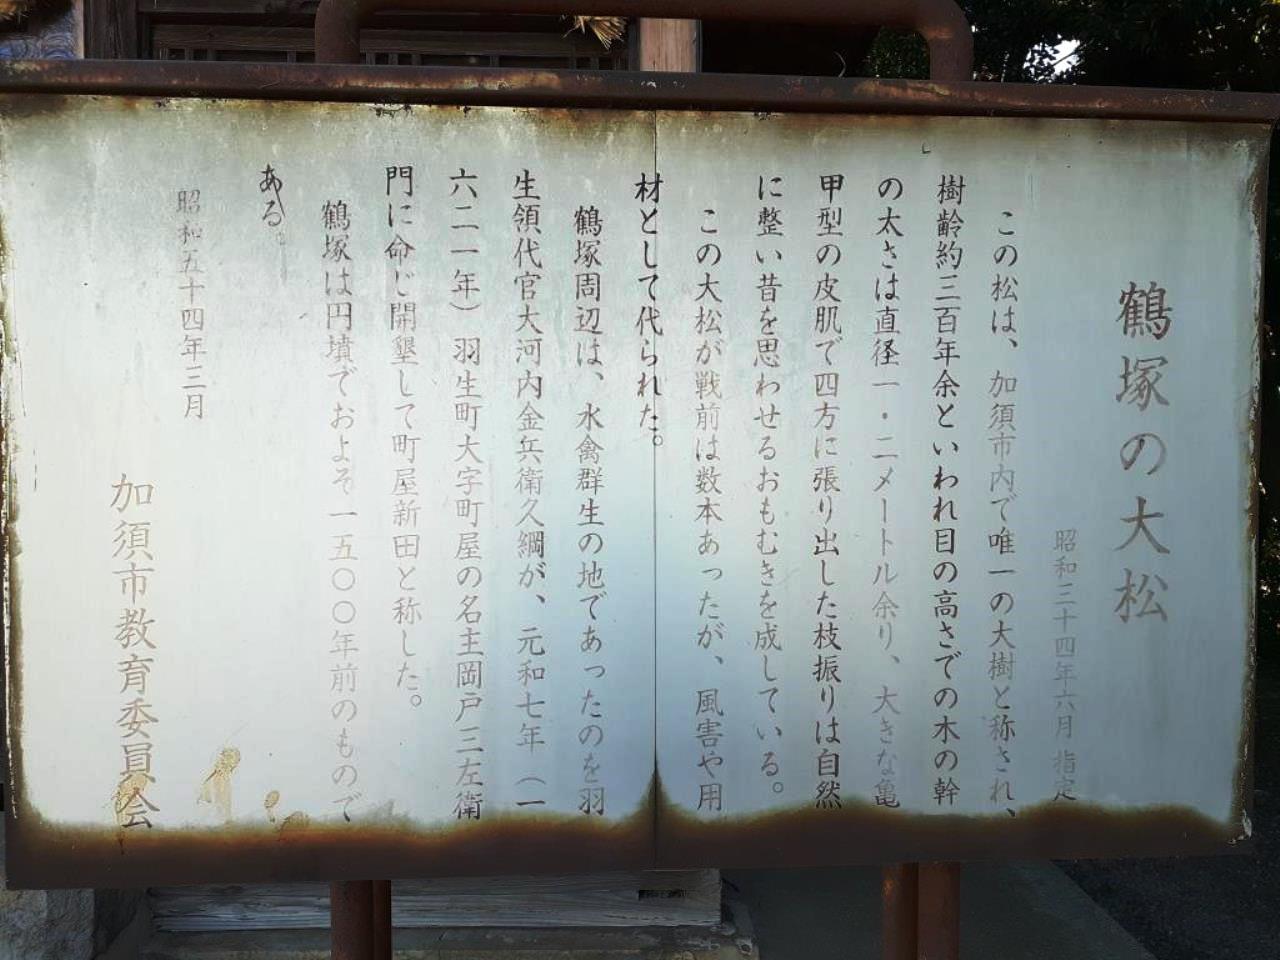 鶴塚の大松
昭和三十四年六月 指定
この松は、加須市内で唯一の大樹と称され、
樹齢約三百年余といわれ目の高さでの木の幹
の太さは直径一・二メートル余り、大きな亀
甲型の皮肌で四方に張り出した枝振りは自然
に整い昔を思わせるおもむきを成している。
この大松が戦前は数本あったが、風害や用
材として代られた。
鶴塚周辺は、水禽群生の地であったのを羽
生領代官大河内金兵衛久綱が、元和七年（一
六二一年）羽生町大字町屋の名主岡戸三左衛
門に命じ開墾して町屋新田と称した。
鶴塚は円墳でおよそ一五〇〇年前のもので
ある。
昭和五十四年三月
加須市教育委員会